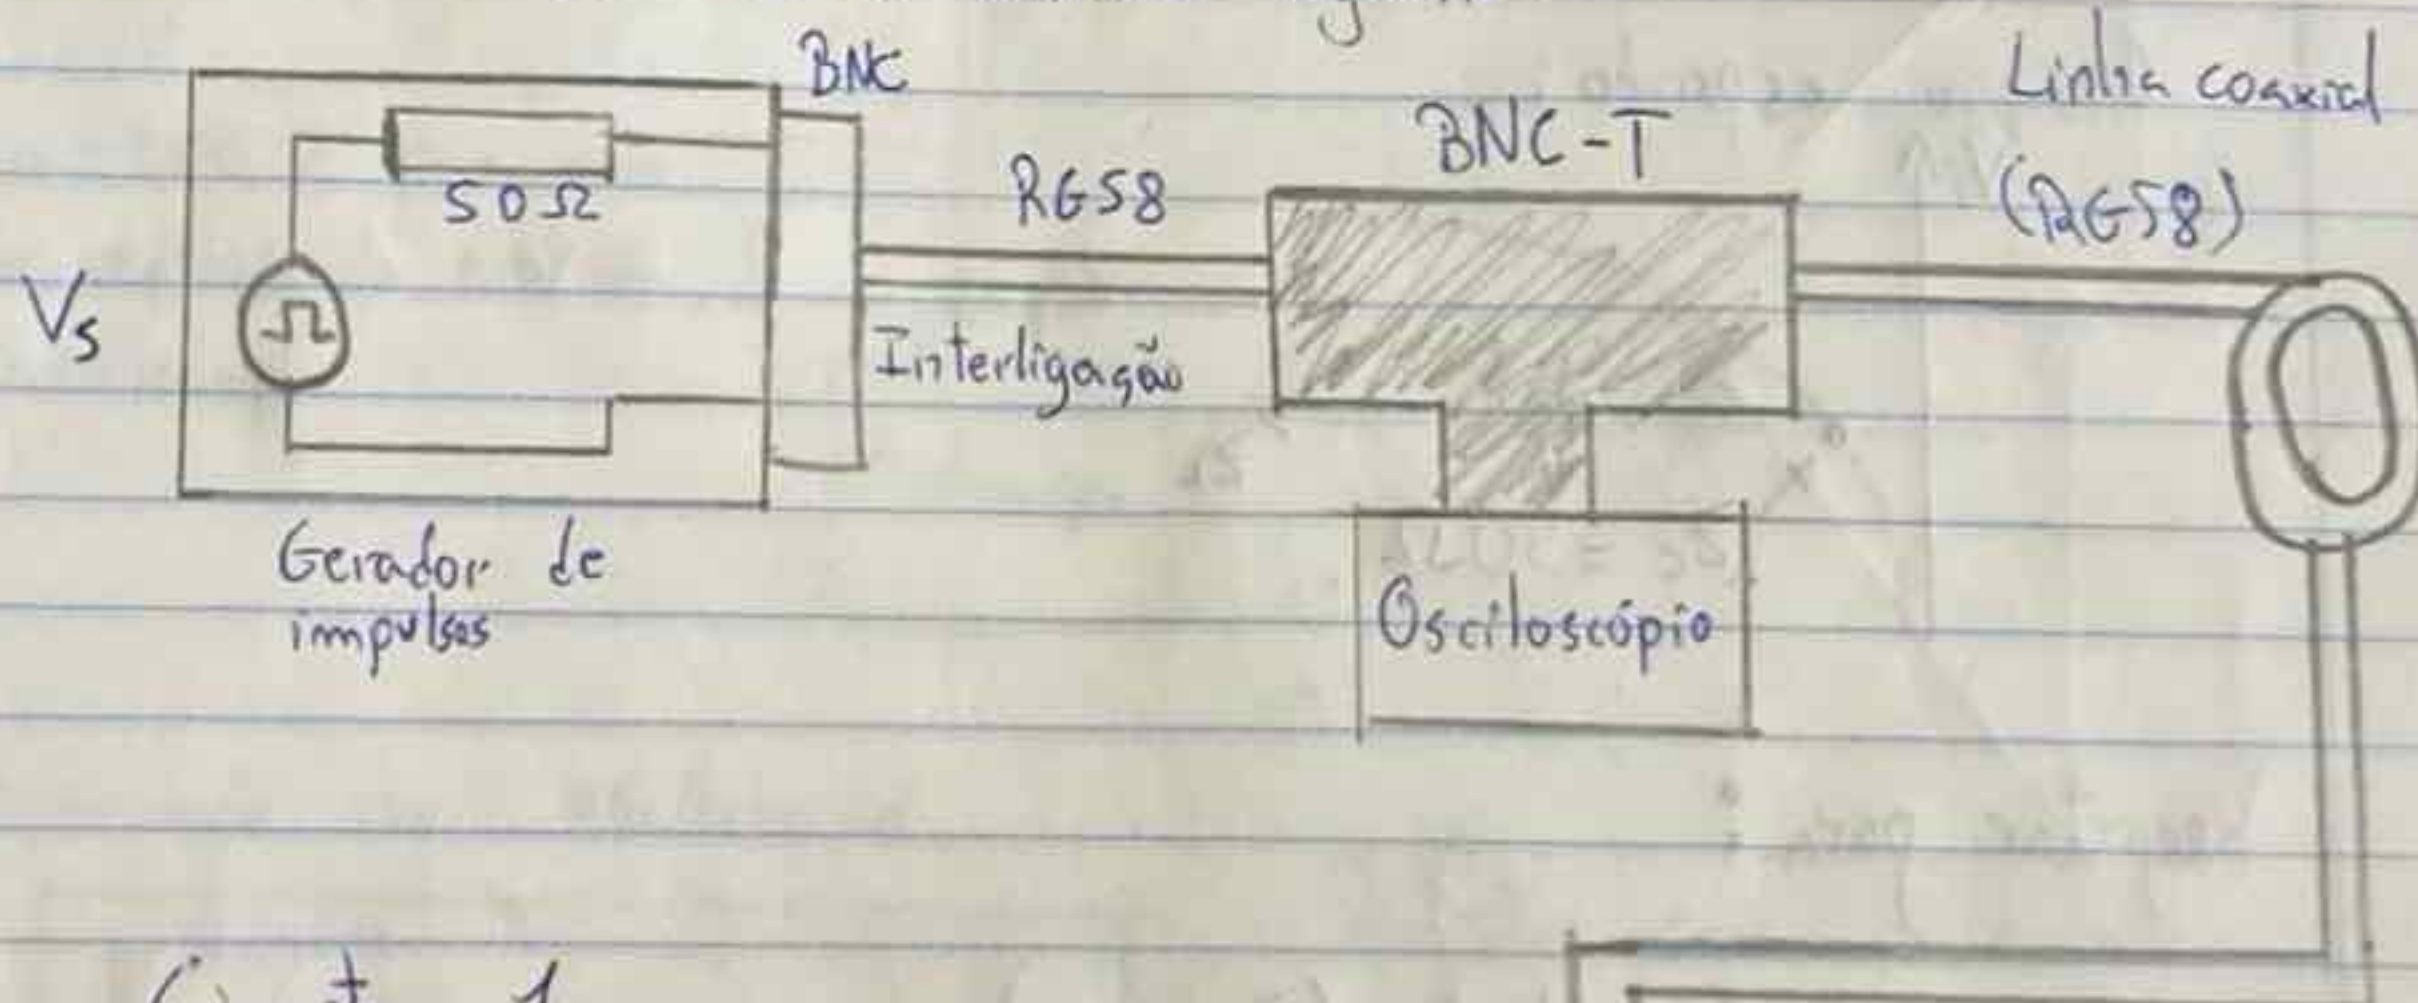 BNC
Linha coaxial
BNC-T
(RG58)
RG58
50Ω
Vs
Interligação
Gerador de
impulsos
Osciloscópio